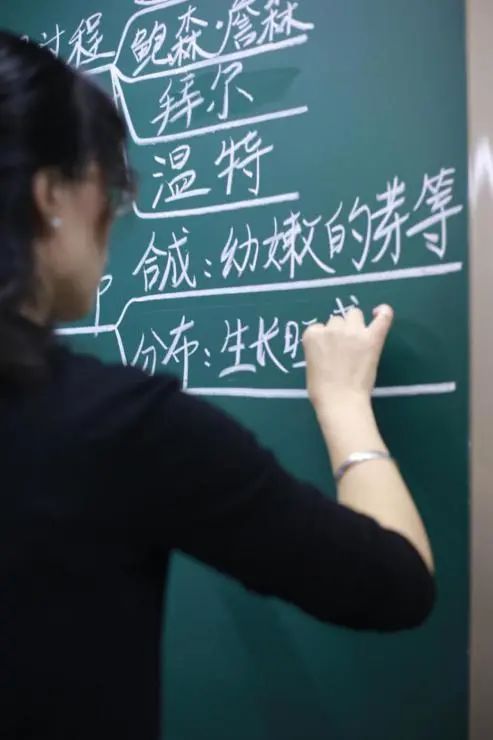 过程
鲍森·詹森
拜尔
温特
合成：幼嫩的芽等
分布：生长旺盛